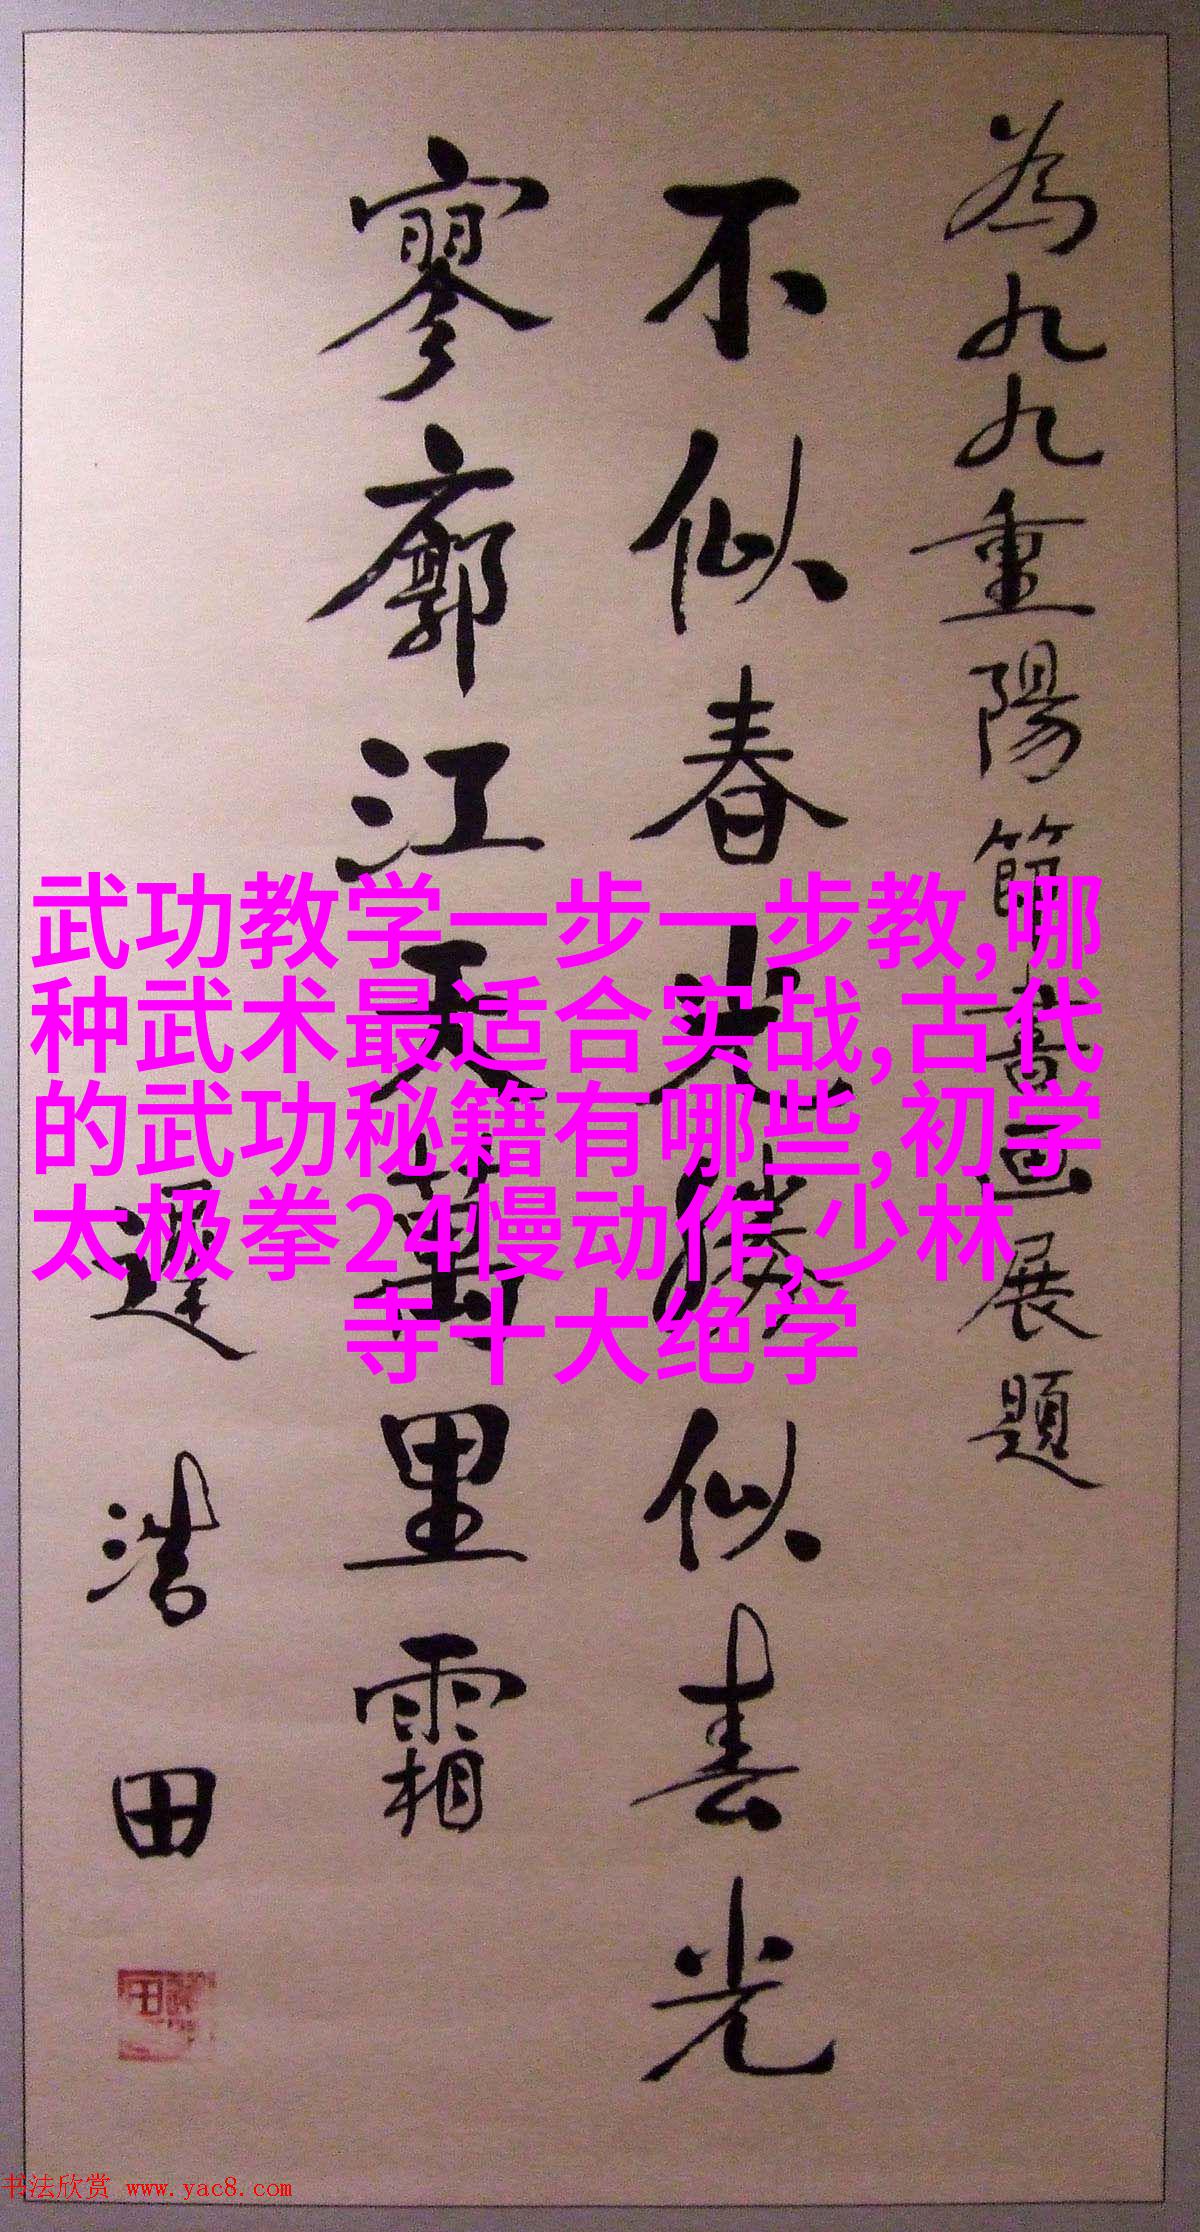 為九九重陽節書画展題
不似春光勝似春光
寥廓江天萬里霜
遲浩田
武功教学一步一步教,哪
种武术最适合实战,古代
的武功秘籍有哪些,初学
太极拳24慢动作,少林
寺十大绝学
书法欣赏 www.yac8.com